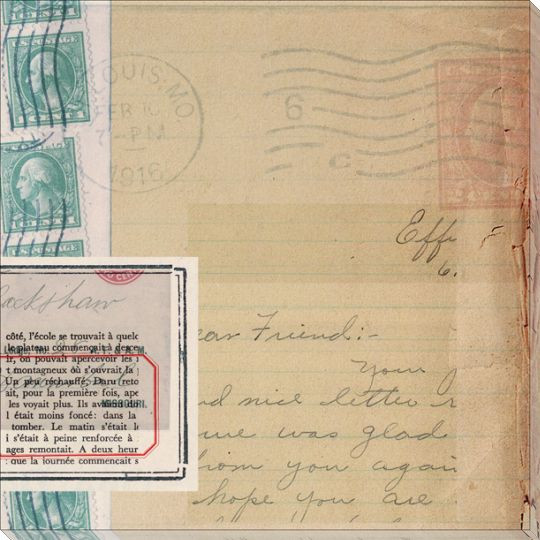 U.S. POSTAGE
LOUIS, MO.
FEB 10
7-PM
1916
6
C
U.S. POSTAGE
U.S. POSTAGE
Effi
6.
ear Friend:-
Your
d nice letter r
me was glad
from you again
hope you are
Rackshaw
côté, l'école se trouvait à quelc
le plateau commençait à desce
ir, on pouvait apercevoir les
t montagneux où s'ouvrait la
Un peu réchauffé, Daru reto
ait, pour la première fois, ape
les voyait plus. Ils av
MISSOURI.
l était moins foncé: dans la
tomber. Le matin s'était l
i s'était à peine renforcée à
ages remontait. A deux heur
que la journée commençait s